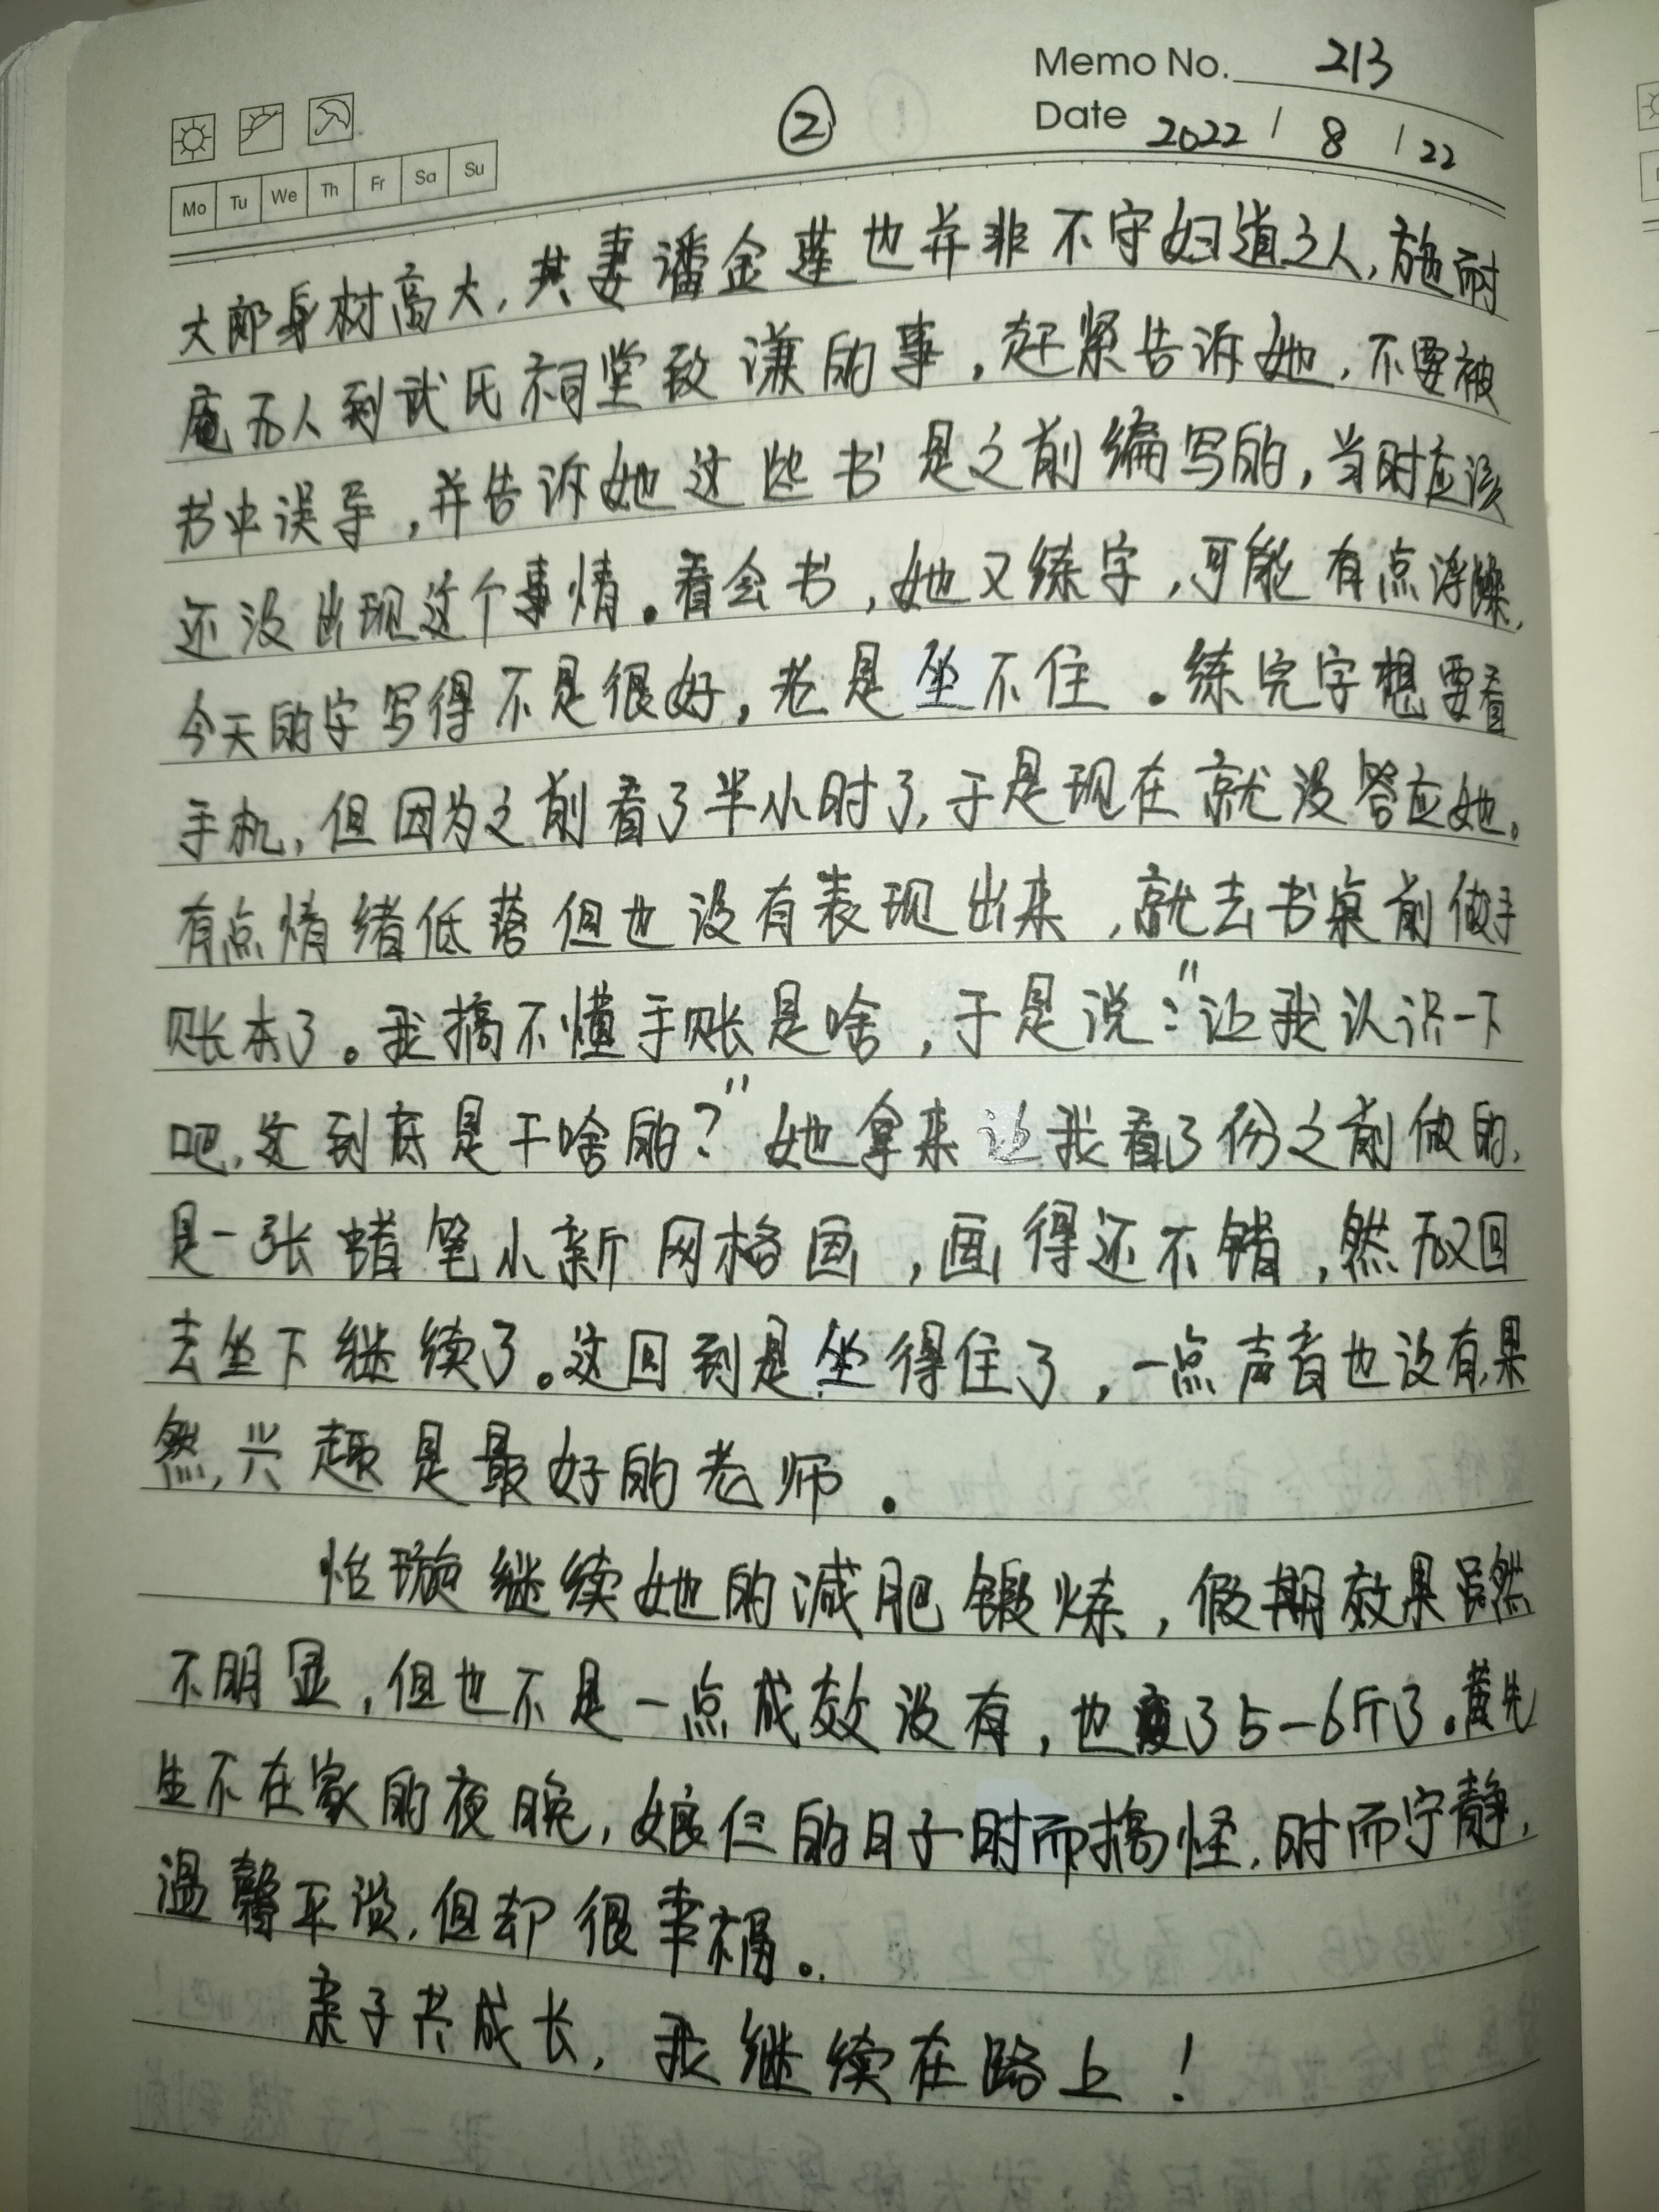 Memo No. 213
② Date 2022 / 8 / 22
Mo Tu We Th Fr Sa Su
大郎身材高大，其妻潘金莲也并非不守妇道之人，施耐
庵后人到武氏祠堂致谦的事，赶紧告诉她，不要被
书中误导，并告诉她这些书是之前编写的，当时应该
还没出现这个事情。看会书，她又练字，可能有点浮躁，
今天的字写得不是很好，老是坐不住。练完字想要看
手机，但因为之前看了半小时了，于是现在就没答应她。
有点情绪低落但也没有表现出来，就去书桌前做手
账本了。我搞不懂手账是啥，于是说："让我认识一下
吧，这到底是干啥的？"她拿来让我看了份之前做的，
是一张蜡笔小新网格画，画得还不错，然后又回
去坐下继续了。这回到是坐得住了，一点声音也没有，果
然，兴趣是最好的老师。
怡璇继续她的减肥锻炼，假期效果虽然
不明显，但也不是一点成效没有，也瘦了5-6斤了。黄先
生不在家的夜晚，娘仨的日子时而搞怪，时而宁静，
温馨平淡，但却很幸福。
亲子共成长，我继续在路上！